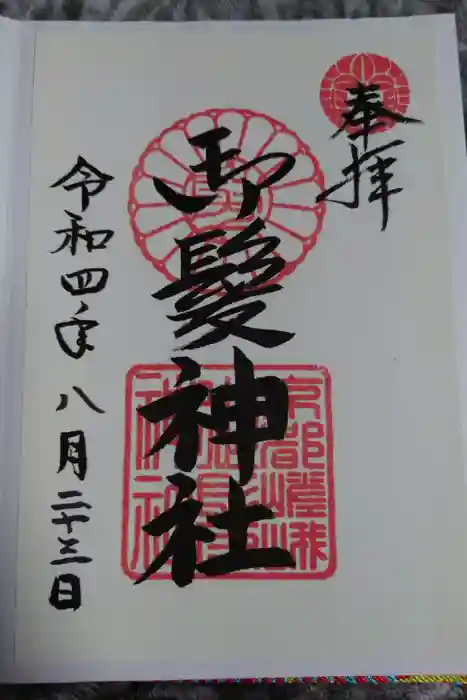 奉拝
御髪神社
京都嵯峨
令和四年八月二十三日